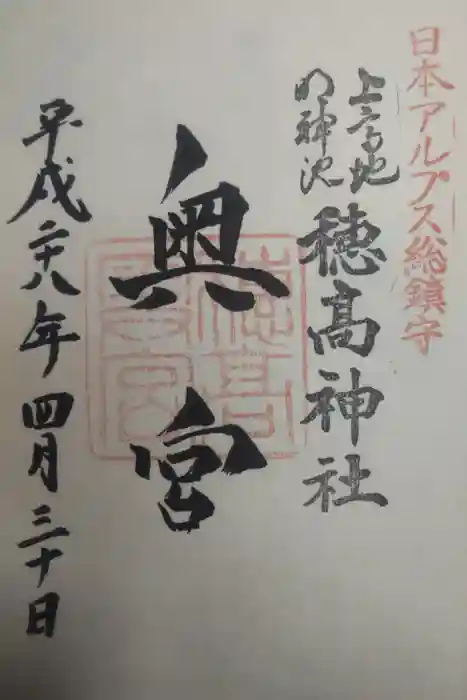 日本アルプス総鎮守
上高地
明神池
穂髙神社
奥宮
平成二十八年四月三十日
穂高
奥宮